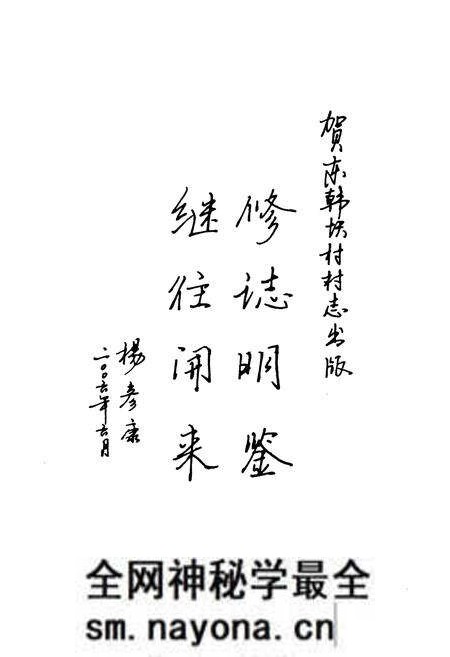 賀东韩坎村村志出版
修誌明鉴
继往开来
楊彦康
二〇〇六年六月
全网神秘学最全
sm.nayona.cn